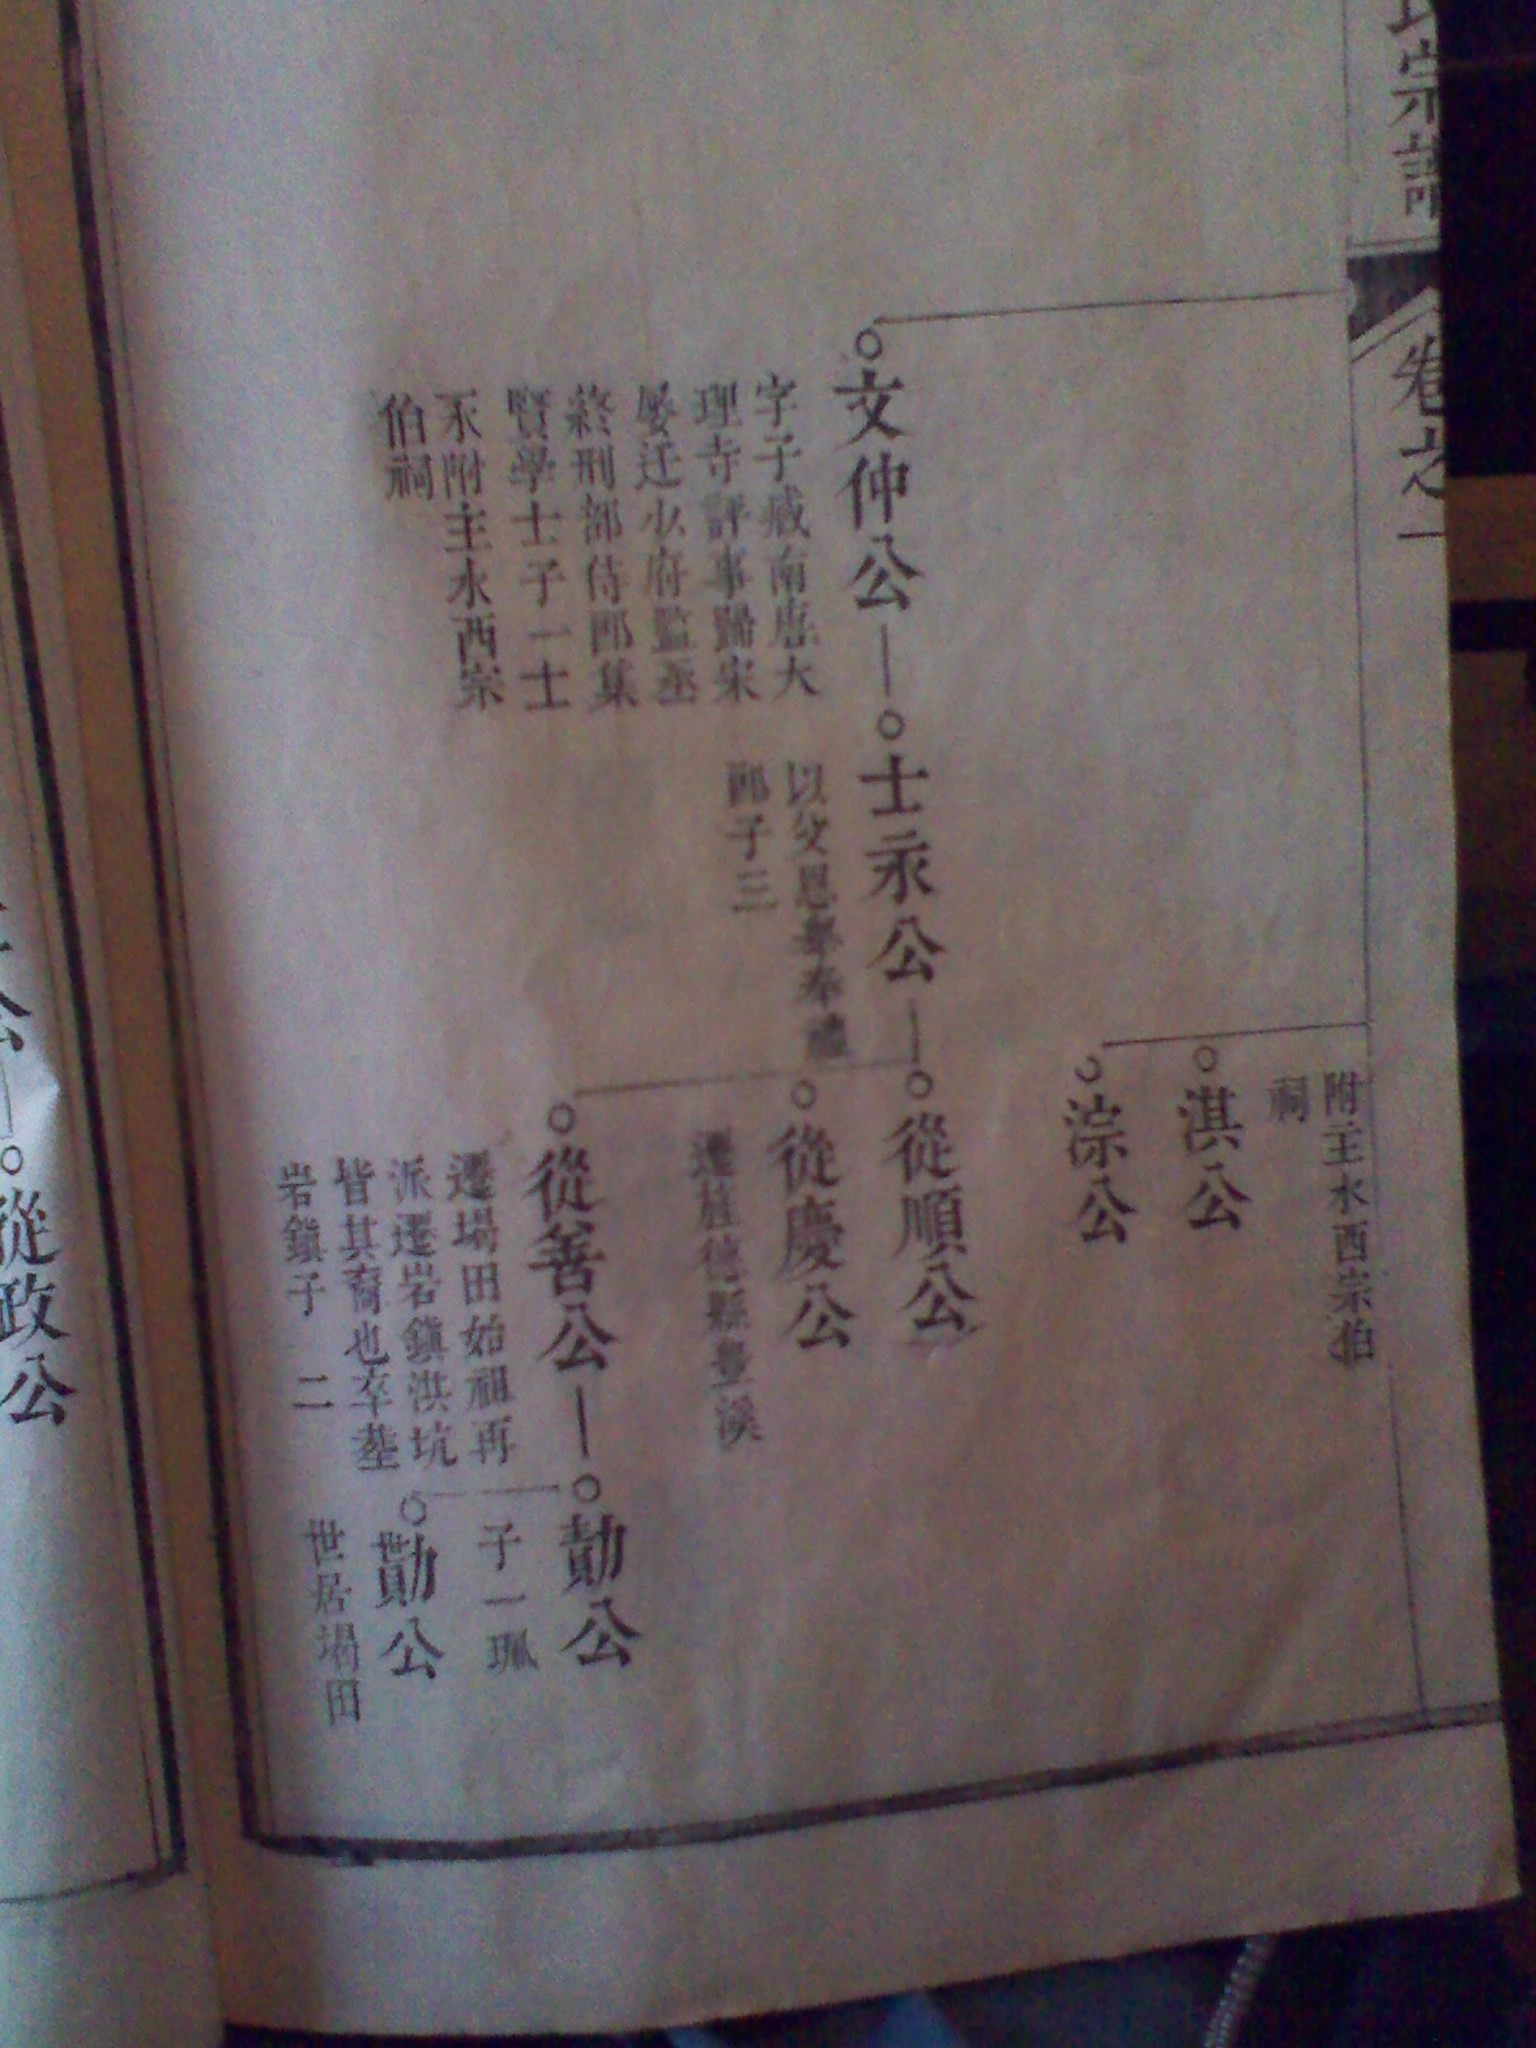 氏宗譜
卷之一
附主水西宗伯
祠
淇公
淙公
文仲公
字子臧南唐大
理寺評事歸宋
屡迁少府監丞
終刑部侍郎集
賢學士子一士
汖附主水西宗
伯祠
士汖公
以父恩奉禮
郎子三
從順公
從慶公
遷旌德縣豊溪
從善公
遷堨田始祖再
派遷岩鎮洪坑
皆其裔也卒塟
岩鎮子二
勣公
子一珮
勩公
世居堨田
公
從政公